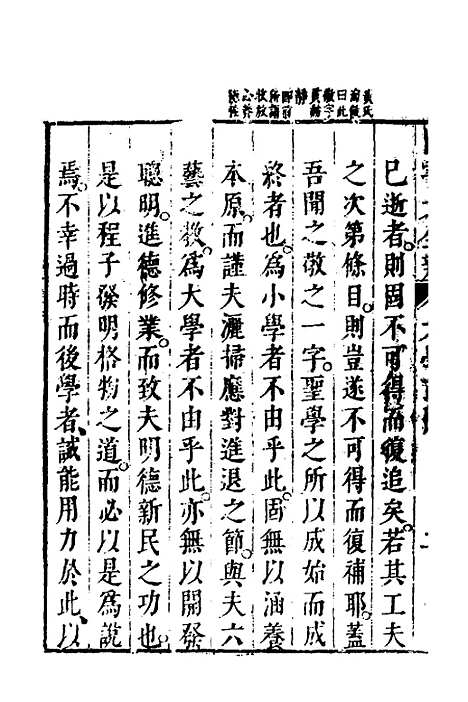 已逝者則固不可得而復追矣若其工夫
之次第條目則豈遂不可得而復補耶蓋
吾聞之敬之一字聖學之所以成始而成
終者也為小學者不由乎此固無以涵養
本原而謹夫灑掃應對進退之節與夫六
藝之教為大學者不由乎此亦無以開發
聰明進德修業而致夫明德新民之功也
是以程子發明格物之道而必以是為說
焉不幸過時而後學者誠能用力於此以